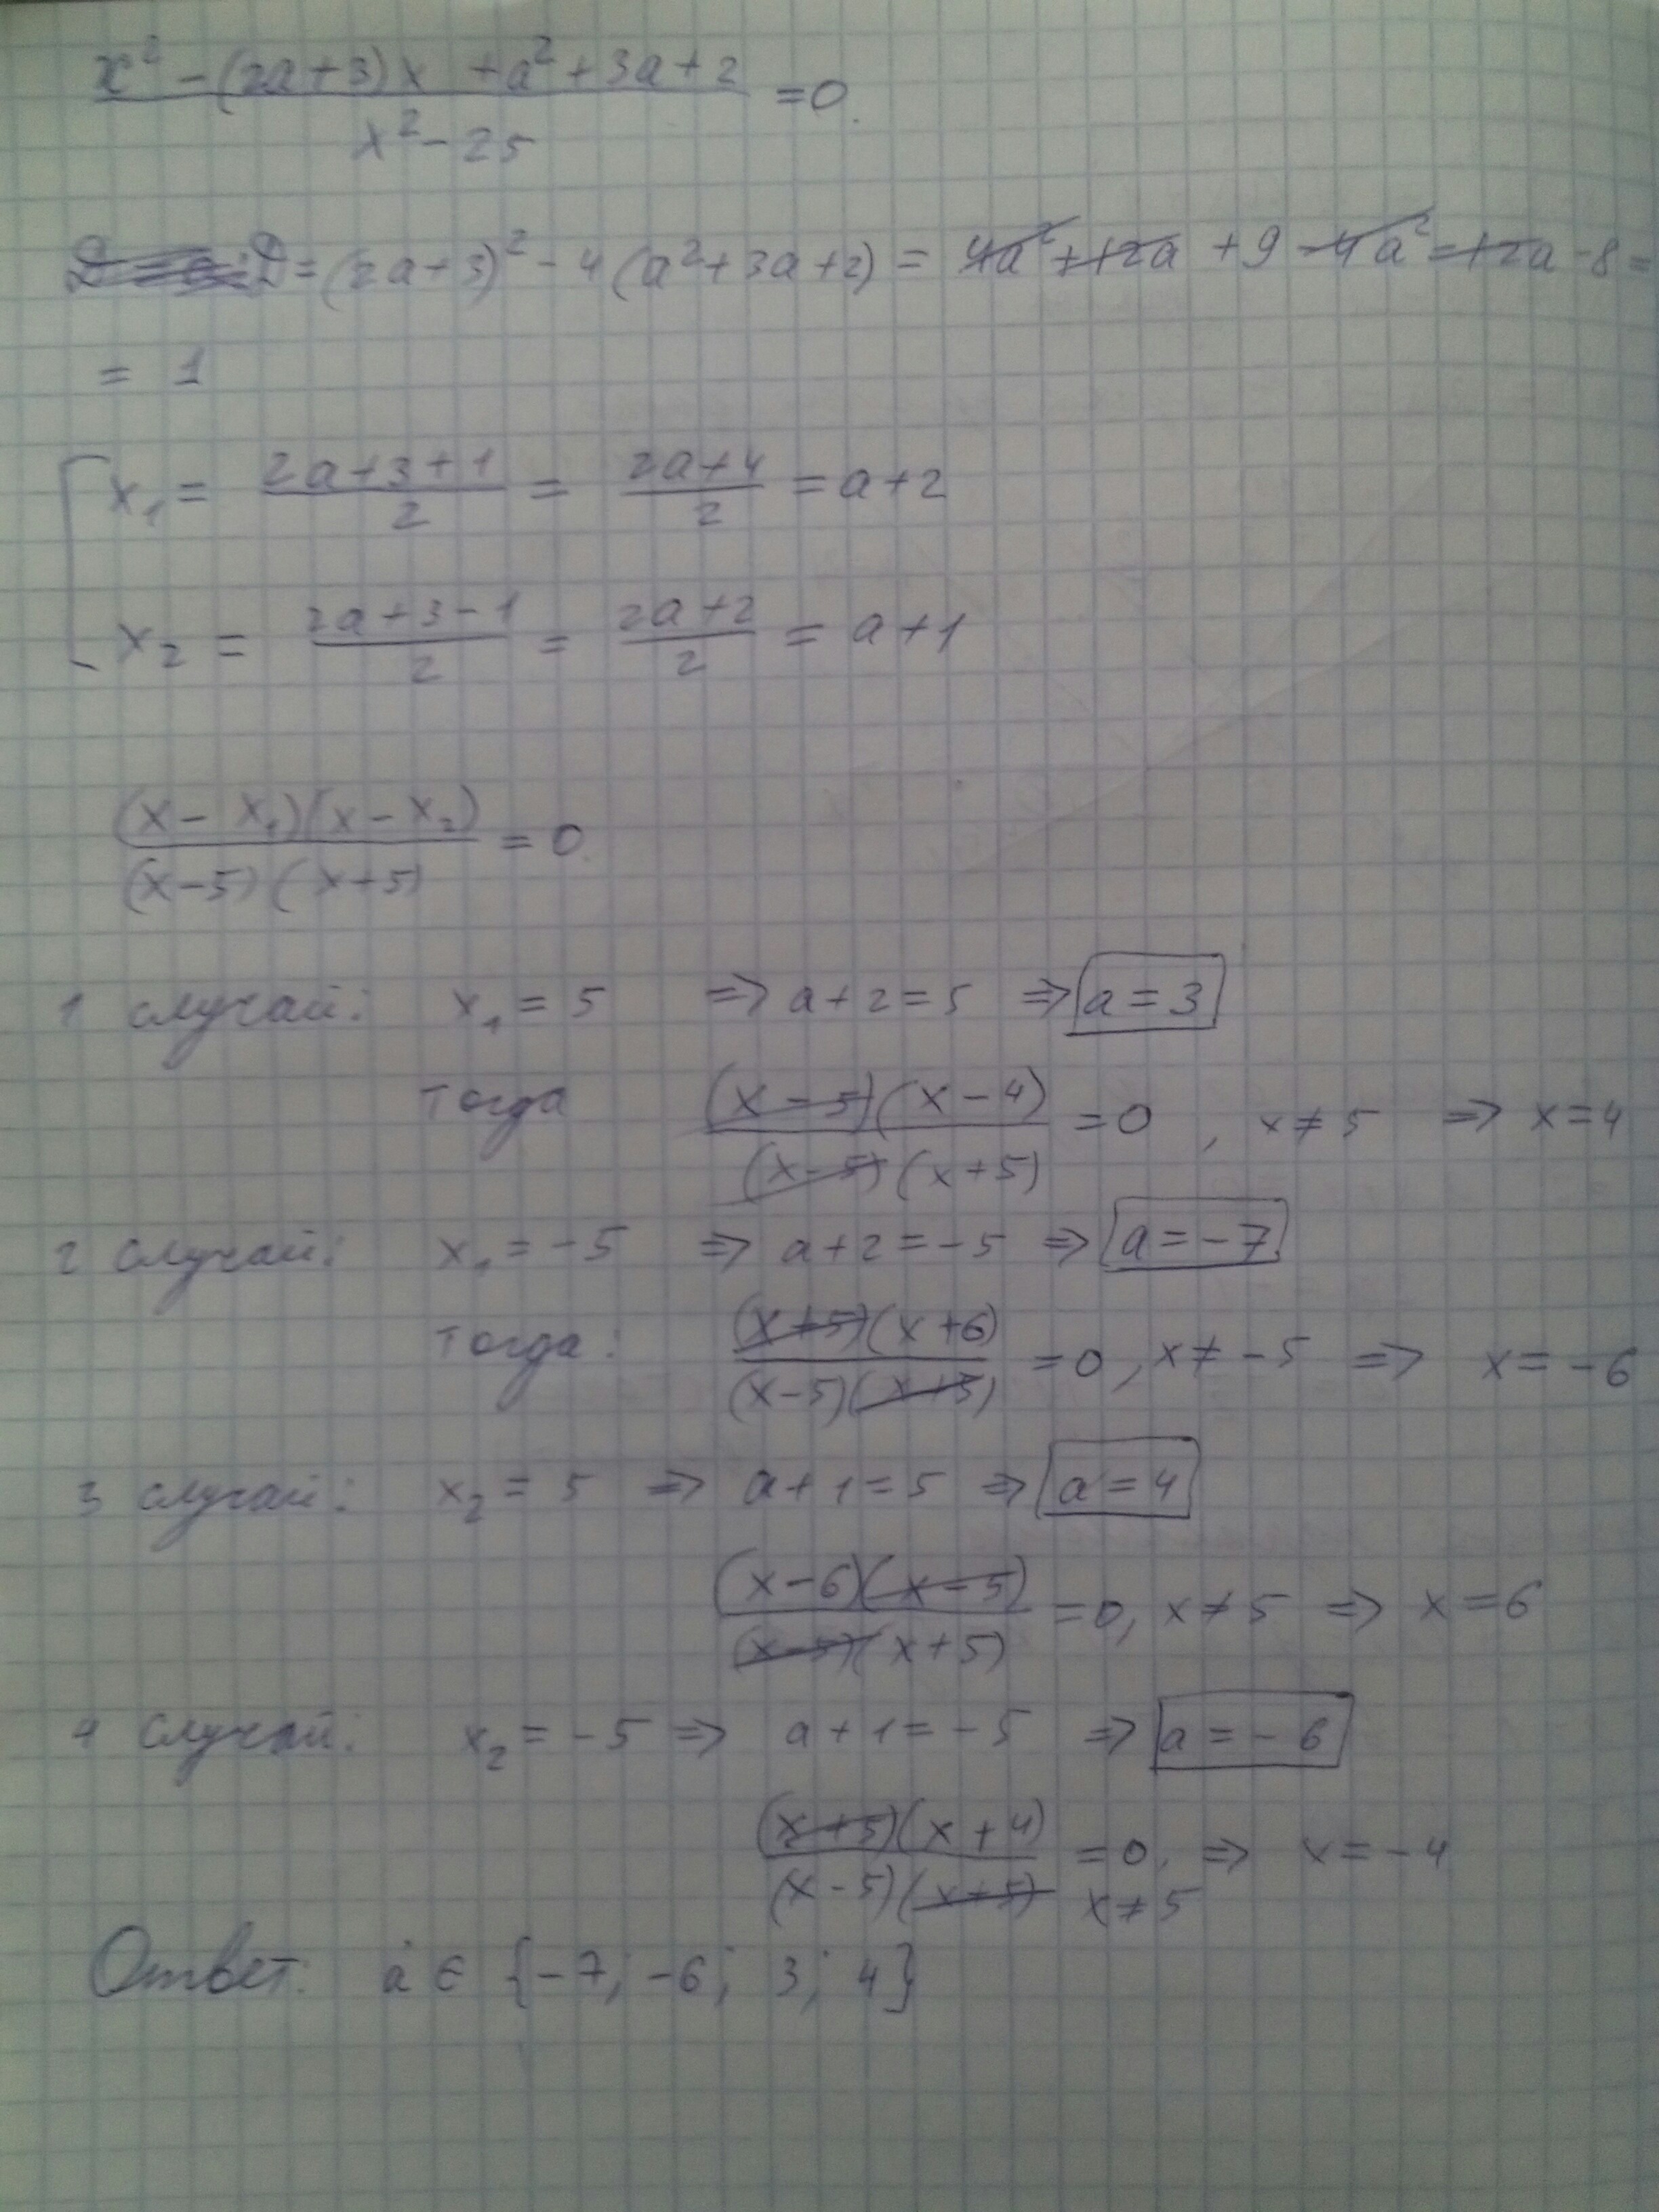 (x² - (2a+3)x + a² + 3a + 2) / (x² - 25) = 0.
D = (2a+3)² - 4(a²+3a+2) = 4a² + 12a + 9 - 4a² - 12a - 8 =
= 1
x₁ = (2a+3+1)/2 = (2a+4)/2 = a+2
x₂ = (2a+3-1)/2 = (2a+2)/2 = a+1
((x - x₁)(x - x₂)) / ((x-5)(x+5)) = 0.
1 случай: x₁ = 5 => a+2=5 => a = 3
Тогда ((x-5)(x-4)) / ((x-5)(x+5)) = 0, x≠5 => x=4
2 случай: x₁ = -5 => a+2=-5 => a=-7
Тогда: ((x+5)(x+6)) / ((x-5)(x+5)) = 0, x≠-5 => x=-6
3 случай: x₂ = 5 => a+1=5 => a=4
((x-6)(x-5)) / ((x-5)(x+5)) = 0, x≠5 => x=6
4 случай: x₂ = -5 => a+1=-5 => a=-6
((x+5)(x+4)) / ((x-5)(x+5)) = 0, x≠5 => x=-4
Ответ: a ∈ {-7; -6; 3; 4}